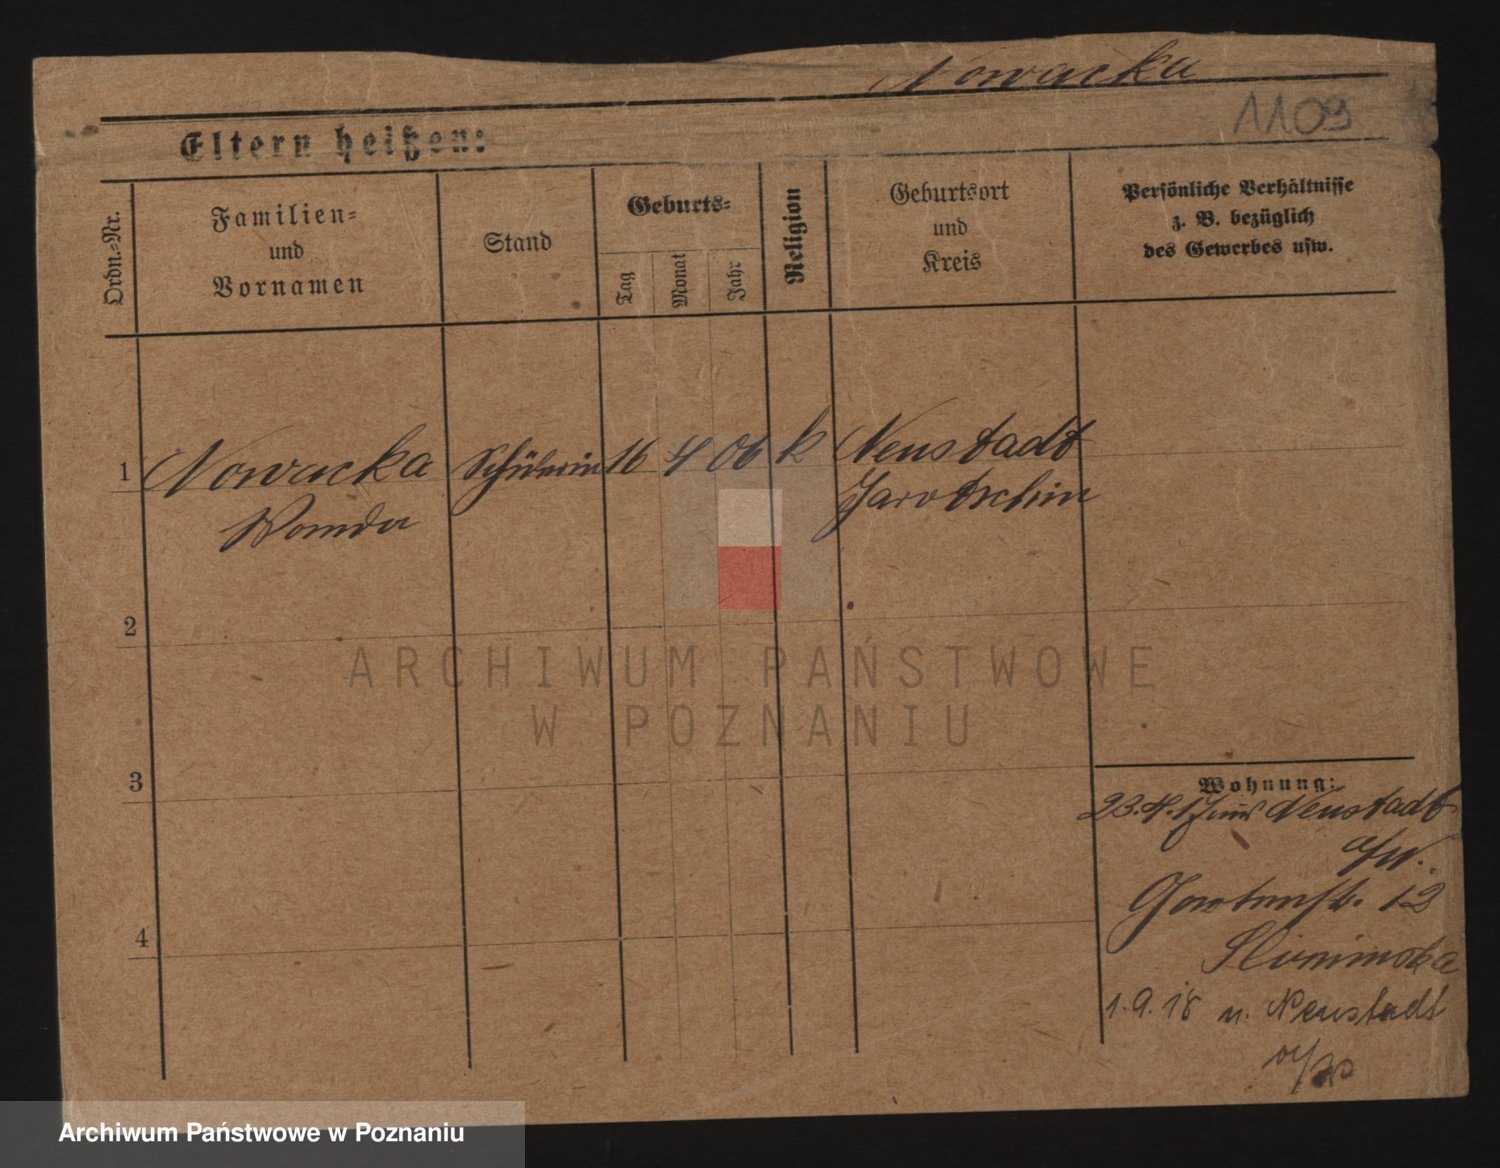 Nowacka
1109
Eltern heißen:
Ordn.-Nr.
Familien-
und
Vornamen
Stand
Geburts-
Tag
Monat
Jahr
Religion
Geburtsort
und
Kreis
Persönliche Verhältnisse
z. B. bezüglich
des Gewerbes usw.
1 Nowacka Schülerin 16 4 06 k Neustadt
Wanda Jarotschin
2
3
4
Wohnung:
23.4.17 aus Neustadt
a/W.
Gartenstr. 12
Slominska
1.9.18 n. Neustadt
ARCHIWUM PAŃSTWOWE
W POZNANIU
Archiwum Państwowe w Poznaniu